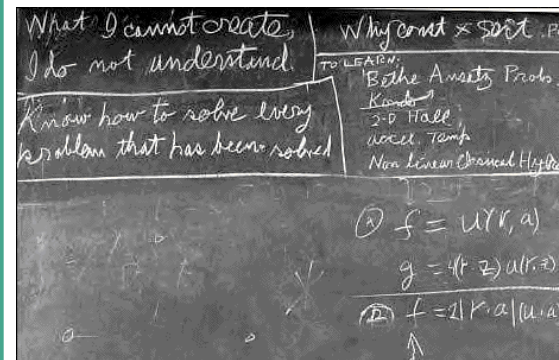 What I cannot create,
I do not understand.
Know how to solve every
problem that has been solved
Why const × sort
TO LEARN:
Bethe Ansatz Prob
Kondo
2-D Hall
accel. Temp
Non linear Classical Hydro
f = u(r, a)
g = 4(r·z) u(r, z)
f = 2|r·a|(u·a